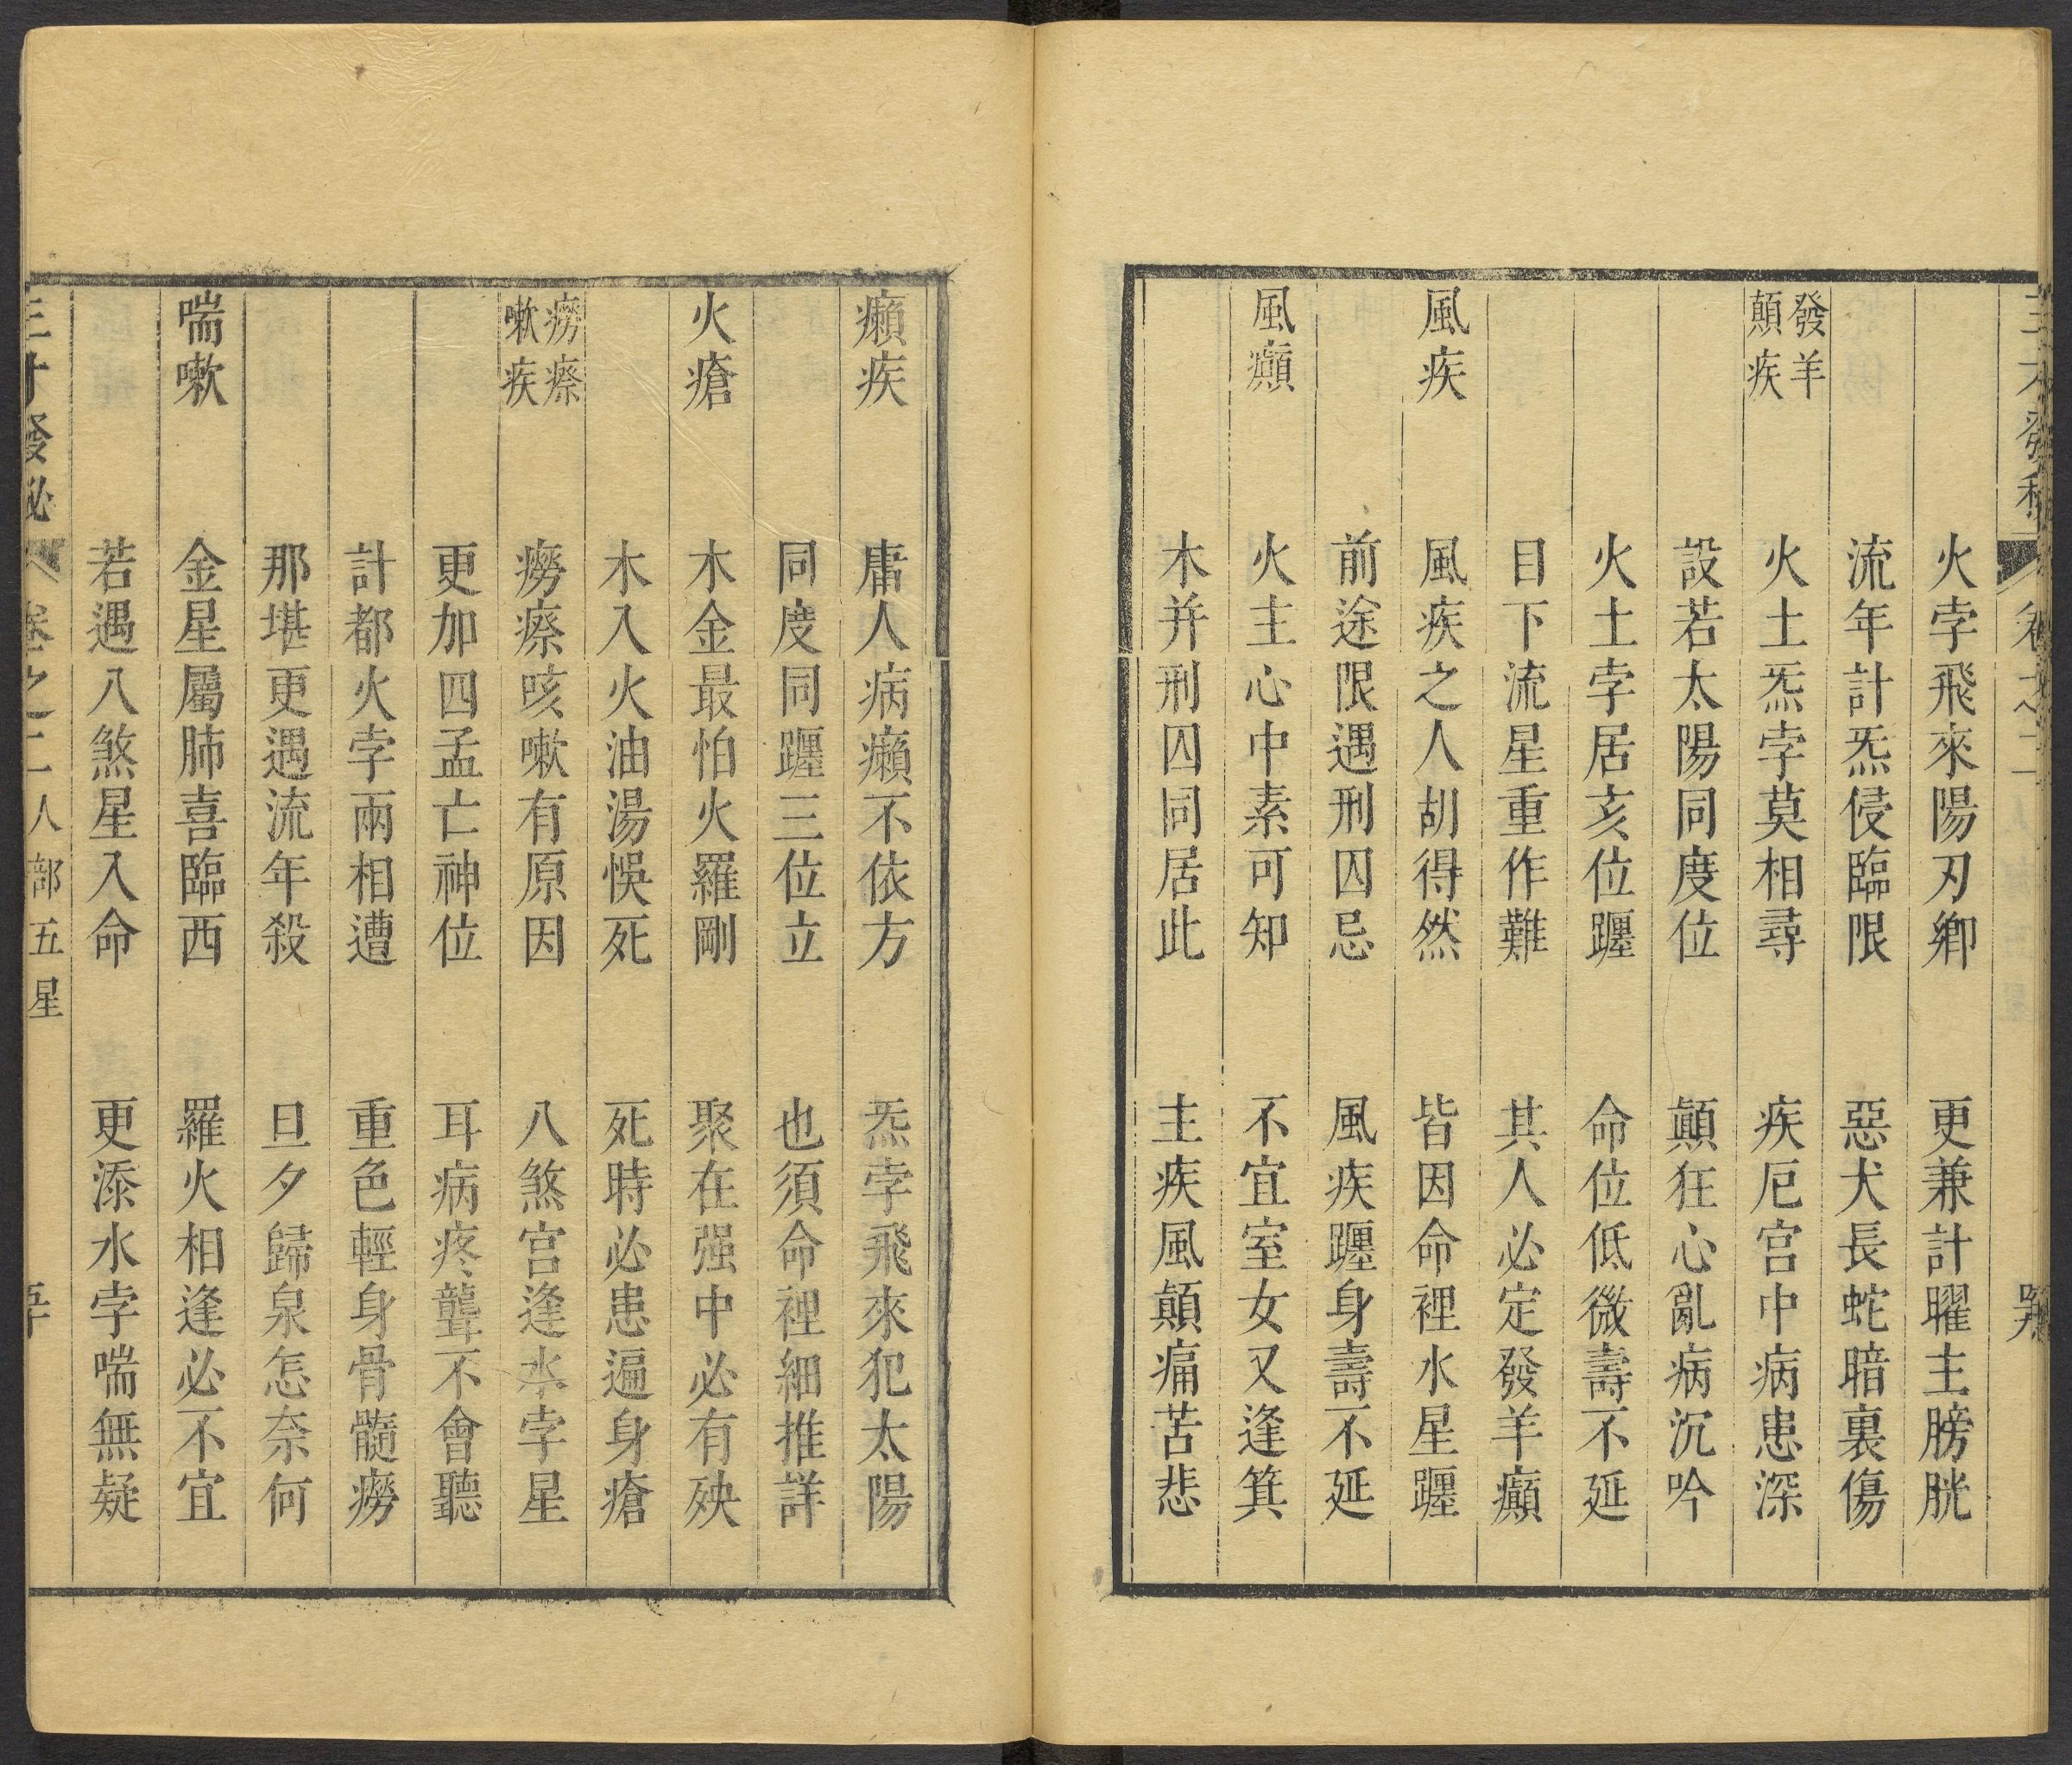 火孛飛來陽刃鄉　更兼計曜主膀胱
流年計炁侵臨限　惡犬長蛇暗裏傷
發羊顛疾　火土炁孛莫相尋　疾厄宫中病患深
設若太陽同度位　顛狂心亂病沉吟
火土孛居亥位躔　命位低微壽不延
目下流星重作難　其人必定發羊癲
風疾　風疾之人胡得然　皆因命裡水星躔
前途限遇刑囚忌　風疾躔身壽不延
風癲　火主心中素可知　不宜室女又逢箕
木并刑囚同居此　主疾風顛痛苦悲
癩疾　庸人病癩不依方　炁孛飛來犯太陽
同度同躔三位立　也須命裡細推詳
火瘡　木金最怕火羅剛　聚在强中必有殃
木入火油湯悞死　死時必患遍身瘡
癆瘵嗽疾　癆瘵咳嗽有原因　八煞宫逢水孛星
更加四孟亡神位　耳病疼聾不會聽
計都火孛兩相遭　重色輕身骨髓癆
那堪更遇流年殺　旦夕歸泉怎奈何
喘嗽　金星屬肺喜臨西　羅火相逢必不宜
若遇八煞星入命　更添水孛喘無疑
三才發秘　卷之二　人部五星